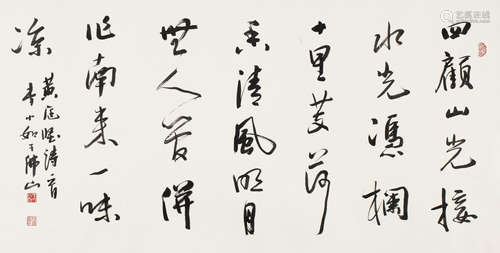 四顧山光接
水光憑欄
十里芰荷
香清風明月
無人管併
作南来一味
凉
黄庭堅詩一首
李小如于佛山